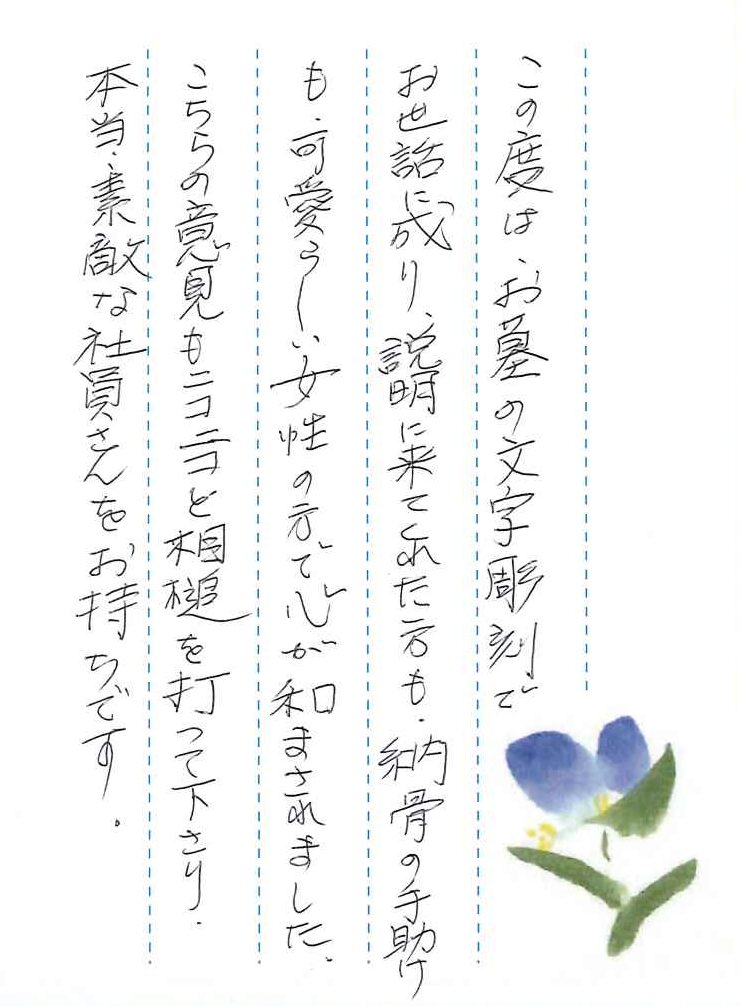 この度は、お墓の文字彫刻で
お世話に成り、説明に来てくれた方も、納骨の手助け
も、可愛うしい女性の方で心が和まされました。
こちらの意見もニコニコと相槌を打って下さり、
本当、素敵な社員さんをお持ちです。